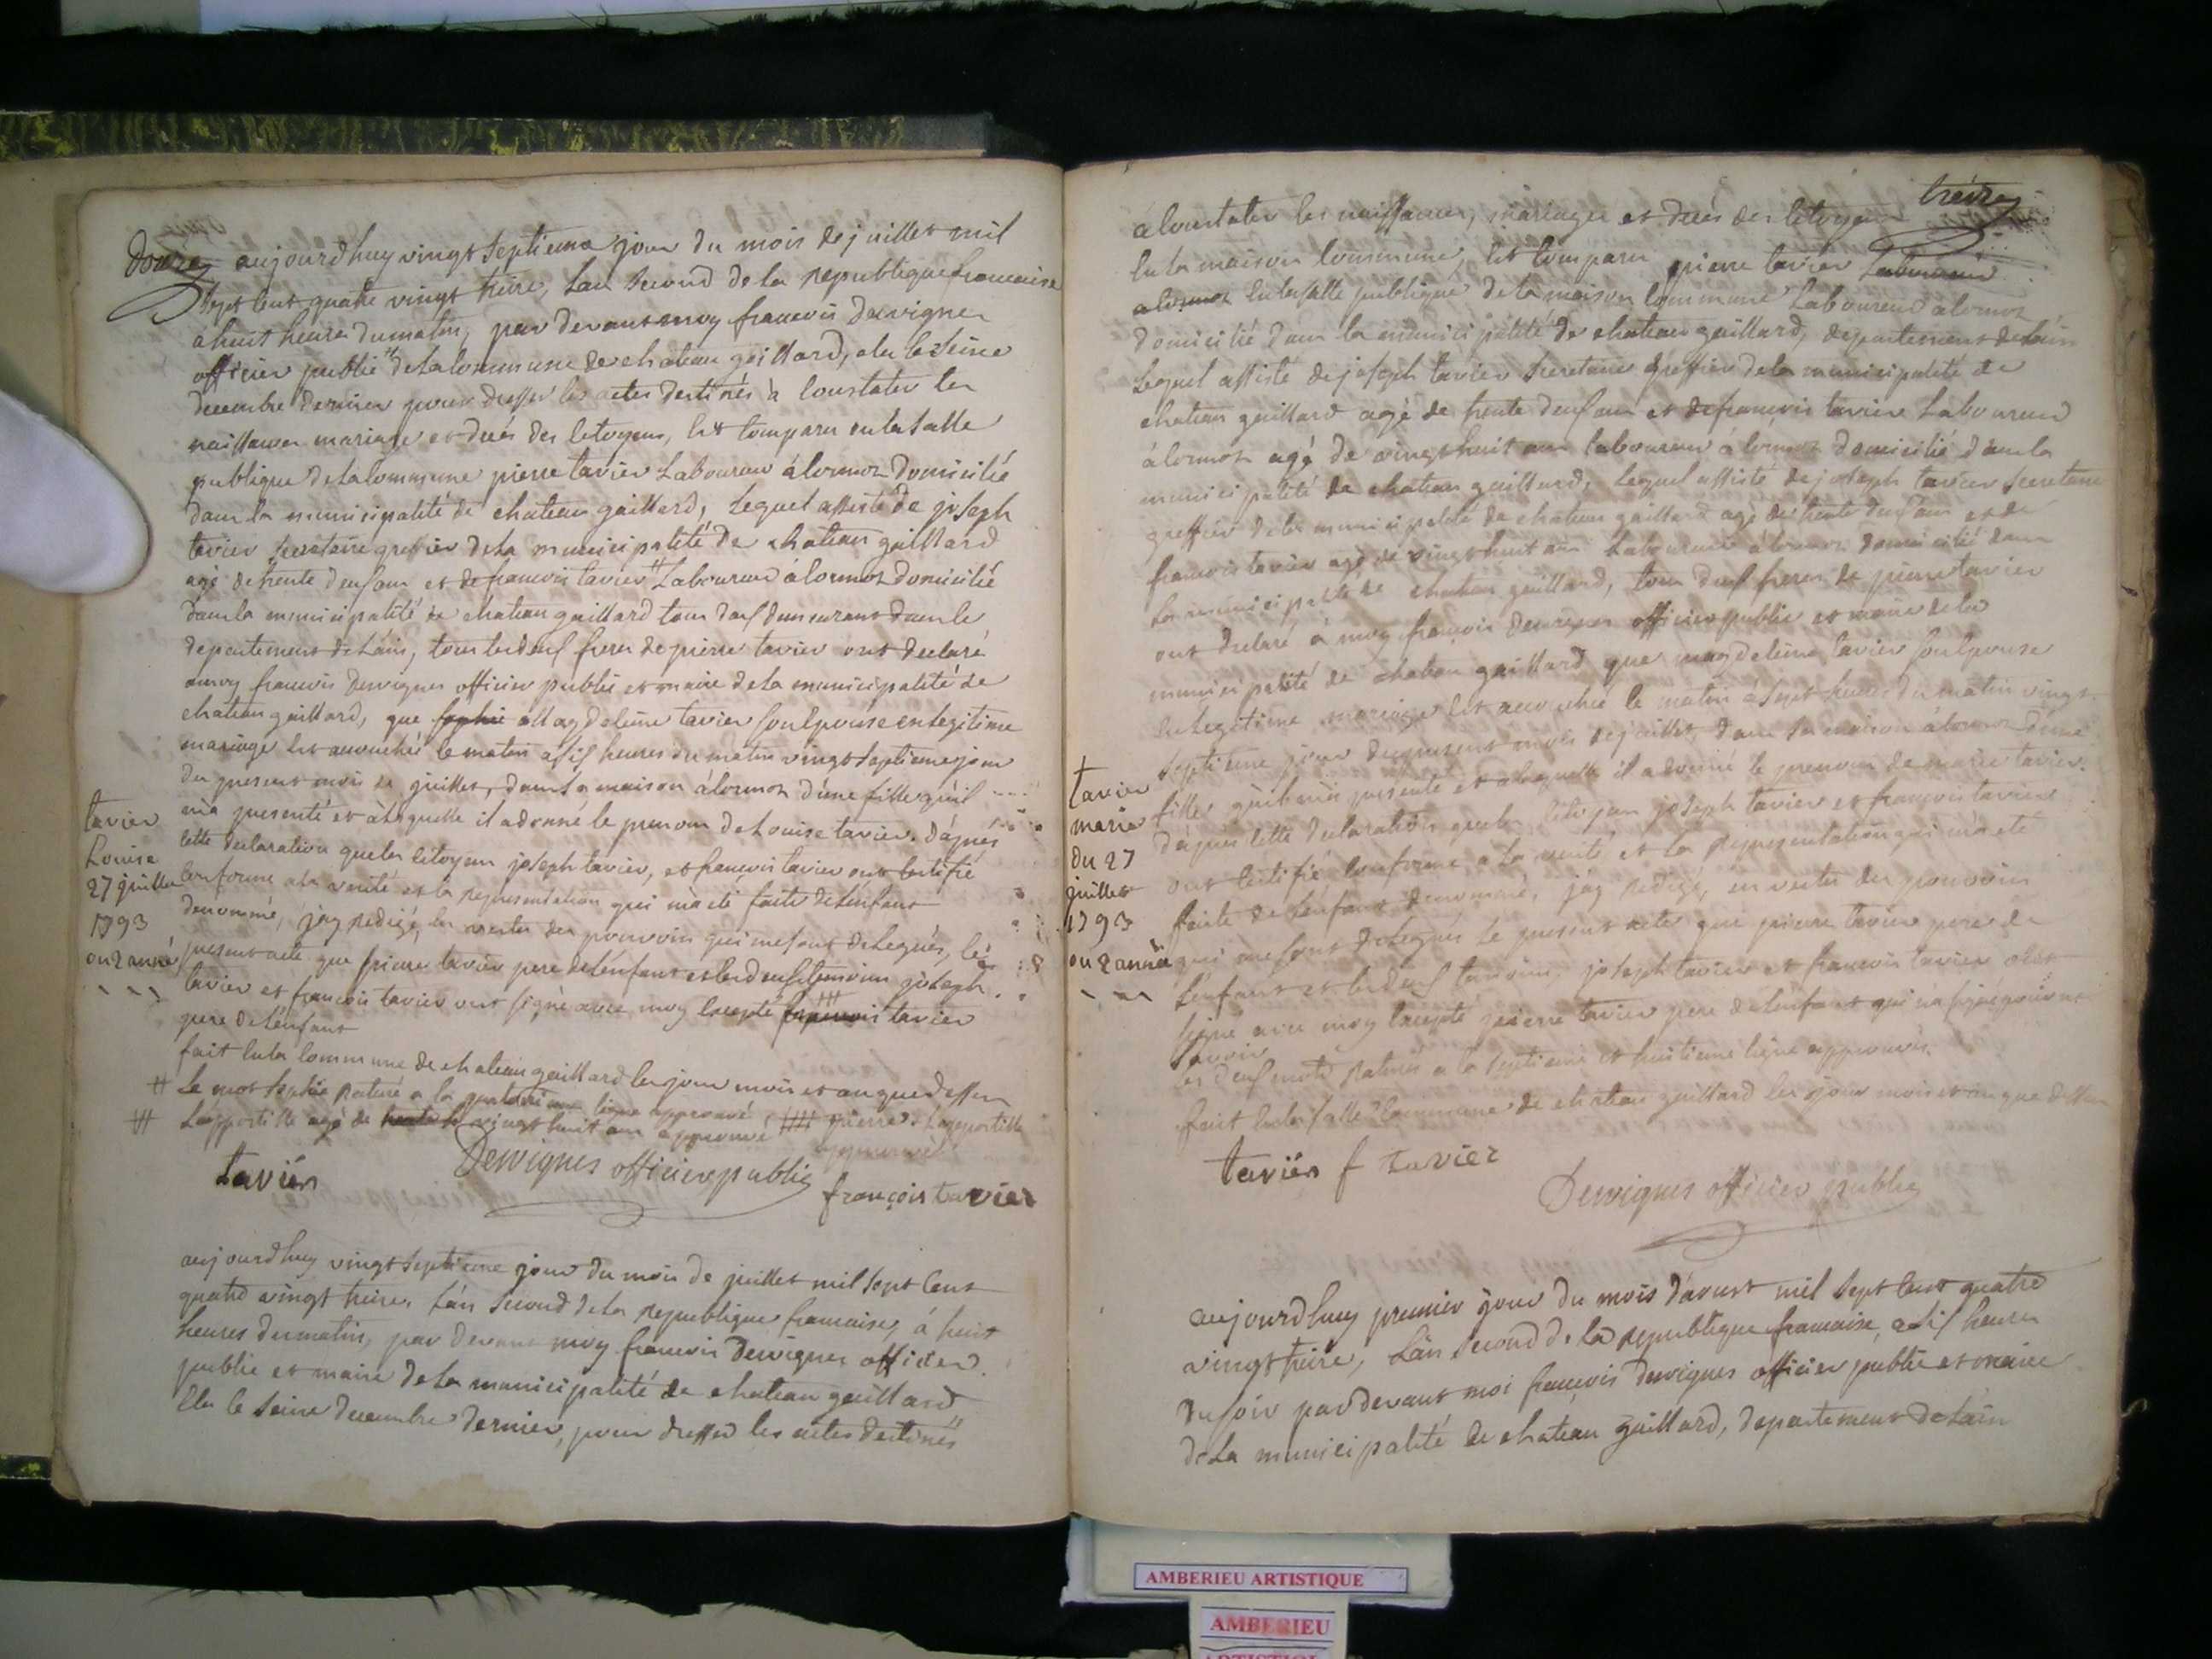 douze
aujourdhuy vingt septieme jour du mois de juillet mil
sept cent quatre vingt treize, l'an second de la republique francaise
a huit heures du matin, par devant moy francois dervignes
officier public de la commune de chateau gaillard, elu le seize
decembre dernier pour dresser les actes destinés à constater les
naissances mariage et decés des citoyens, est comparu en la salle
publique de la commune pierre tavier laboureur à cormoz domicilié
dans la municipalité de chateau gaillard, lequel assisté de joseph
tavier secretaire grefier de la municipalité de chateau gaillard
agé de trente deux ans et de francois tavier # laboureur à cormoz domicilié
dans la municipalité de chateau gaillard tous deux demeurant dans le
departement de l'ain, tous les deux freres de pierre tavier ont declaré
a moy francois dervignes officier public et maire de la municipalité de
chateau gaillard, que sophie Magdeleine tavier son epouse en legitime
mariage est accouchée le matin à six heures du matin vingt septieme jour
du present mois de juillet, dans sa maison à cormoz d'une fille qu'il
m'a presenté et à laquelle il a donné le prenom de Louise tavier. d'aprés
cette declaration que les citoyens joseph tavier, et francois tavier ont certifié
conforme a la verité et la representation qui m'a eté faite de l'enfant
denommé, j'ay redigé, en vertu des pouvoirs qui me sont delegués, le
present acte que pierre tavier pere de l'enfant et les deux temoins joseph
tavier et francois tavier ont signé avec moy excepté francois tavier
pere de l'enfant
fait en la commune de chateau gaillard les jour mois et an que dessus
# Le mot sophie raturé a la ligne approuvé
## L'appostille agé de vingt huit ans approuvé ### pierre L'appostille
approuvé
tavier
Dervignes officier public
françois tavier
tavier
Louise
27 juillet
1793
ou 2 année
aujourdhuy vingt septieme jour du mois de juillet mil sept cent
quatre vingt treize. l'an second de la republique francaise, à huit
heures du matin, par devant moy francois Dervignes officier
public et maire de la municipalité de chateau gaillard
elu le seize decembre dernier, pour dresser les actes destinés
treize
à constater les naissances, mariages et decés des citoyens
en la maison commune, est comparu pierre tavier laboureur
a cormoz en la salle publique de la maison commune laboureur a cormoz
domicilié dans la municipalité de chateau gaillard, departement de l'ain
lequel assisté de joseph tavier secretaire greffier de la municipalité de
chateau gaillard agé de trente deux ans et de francois tavier laboureur
à cormoz agé de vingt huit ans laboureur à cormoz domicilié dans la
municipalité de chateau gaillard, lequel assisté de joseph tavier secretaire
greffier de la municipalité de chateau gaillard agé de trente deux ans et de
francois tavier agé de vingt huit ans laboureur à cormoz domicilié dans
la municipalité de chateau gaillard, tous deux freres de pierre tavier
ont declaré à moy françois dervignes officier public et maire de la
municipalité de chateau gaillard que magdeleine tavier son epouse
en legitime mariage est accouchée le matin à sept heures du matin vingt
septieme jour du present mois de juillet, dans sa maison à cormoz d'une
fille qu'il m'a presenté et a laquelle il a donné le prenom de marie tavier.
d'aprés cette declaration que les citoyens joseph tavier et françois tavier
ont certifié conforme a la verité et la representation qui m'a eté
faite de l'enfant denommé, j'ay redigé, en vertu des pouvoirs
qui me sont delegués le present acte que pierre tavier pere de
l'enfant et les deux temoins joseph tavier et francois tavier ont
signé avec moy excepté pierre tavier pere de l'enfant qui n'a signé pour ne
savoir
les deux mots raturés a la septieme et huitieme ligne approuvés.
fait en la salle commune de chateau gaillard les jour mois et an que dessus
taviér f tavier
Dervignes officier public
tavier
marie
du 27
juillet
1793
ou 2 année
aujourdhuy premier jour du mois d'aoust mil sept cent quatre
vingt treize, l'an second de la republique francaise, a six heures
du soir pardevant moi françois dervignes officier public et maire
de la municipalité de chateau gaillard, departement de l'ain
AMBERIEU ARTISTIQUE
AMBERIEU
ARTISTIQUE